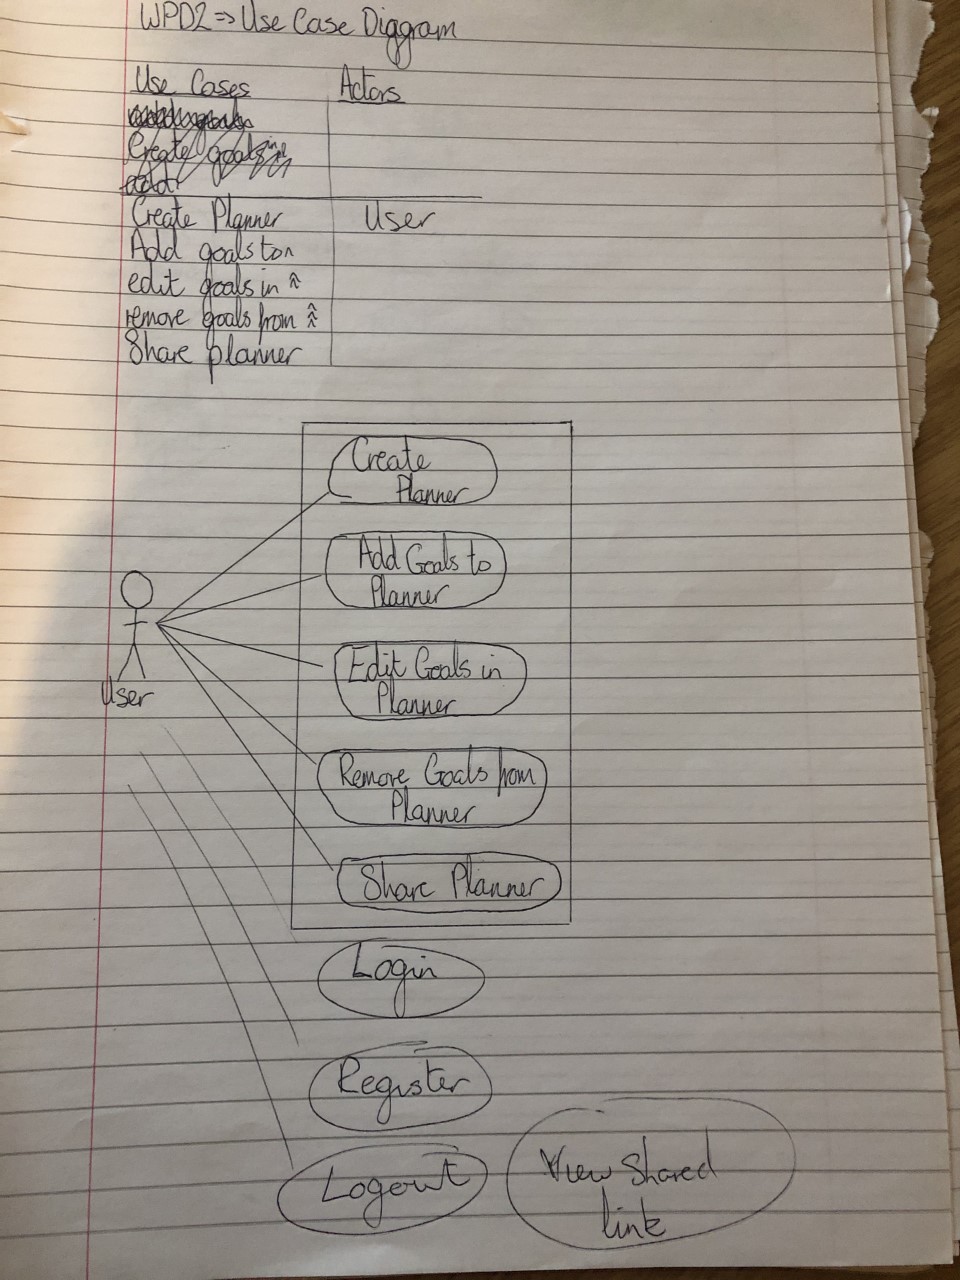 WPD2 => Use Case Diagram
Use Cases Actors
Create goals
add
Create Planner User
Add goals to ^
edit goals in ^
remove goals from ^
Share planner
Create
Planner
Add Goals to
Planner
Edit Goals in
Planner
User
Remove Goals from
Planner
Share Planner
Login
Register
Logout
View Shared
link